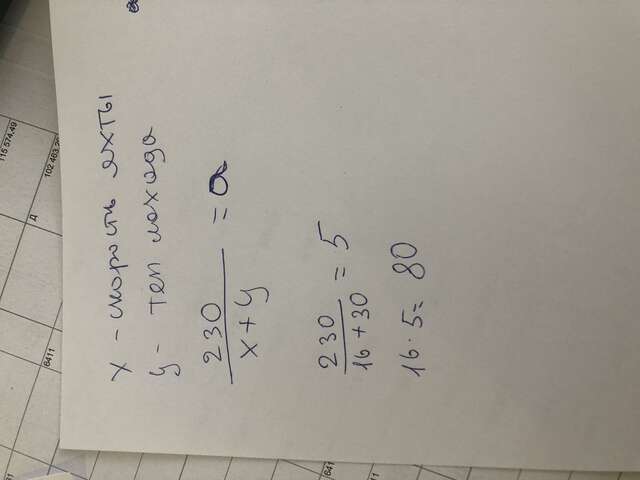 x - скорость яхты
y - теплохода
230
x + y
= a
230
16 + 30
= 5
16 · 5 = 80
115 574,49
102 463,26
Д
6411
6411